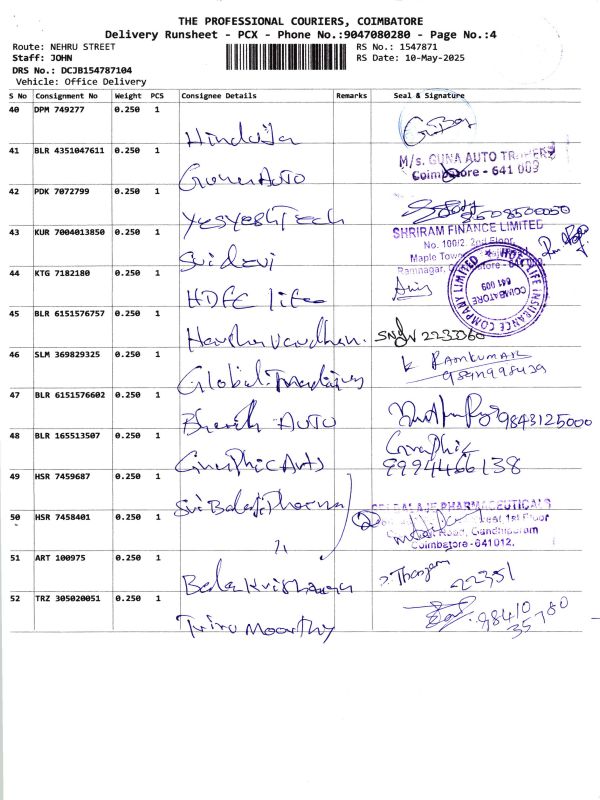 THE PROFESSIONAL COURIERS, COIMBATORE
Delivery Runsheet - PCX - Phone No.:9047080280 - Page No.:4
Route: NEHRU STREET
RS No.: 1547871
Staff: JOHN
RS Date: 10-May-2025
DRS No.: DCJB154787104
Vehicle: Office Delivery
S No Consignment No Weight PCS Consignee Details Remarks Seal & Signature
40 DPM 749277 0.250 1
Hinduja
41 BLR 4351047611 0.250 1
M/s. GUNA AUTO
Coimbatore - 641 009
Guna AUTO
42 PDK 7072799 0.250 1
YesYeshTech
43 KUR 7004013850 0.250 1
SHRIRAM FINANCE LIMITED
No. 100/2, 2nd Floor,
Maple
Ramnagar,
Sri devi
44 KTG 7182180 0.250 1
HDFC LIFE INSURANCE COMPANY LIMITED
COIMBATORE
641 009
HDFC life
45 BLR 6151576757 0.250 1
Harsha Vardhan. 2233060
46 SLM 369829325 0.250 1
K RAMKUMAR
Global Tradings
47 BLR 6151576602 0.250 1
Bharath AUTO 9843125000
48 BLR 165513507 0.250 1
Graphic
Graphic Arts 9994466138
49 HSR 7459687 0.250 1
Sri Balaji Pharma
50 HSR 7458401 0.250 1
PHARMACEUTICALS
1st Floor
Road, Gandhipuram
Coimbatore-641012.
51 ART 100975 0.250 1
Thangam 22351
Bala Krishnan
52 TRZ 305020051 0.250 1
98410
35780
Tiru Moorthy